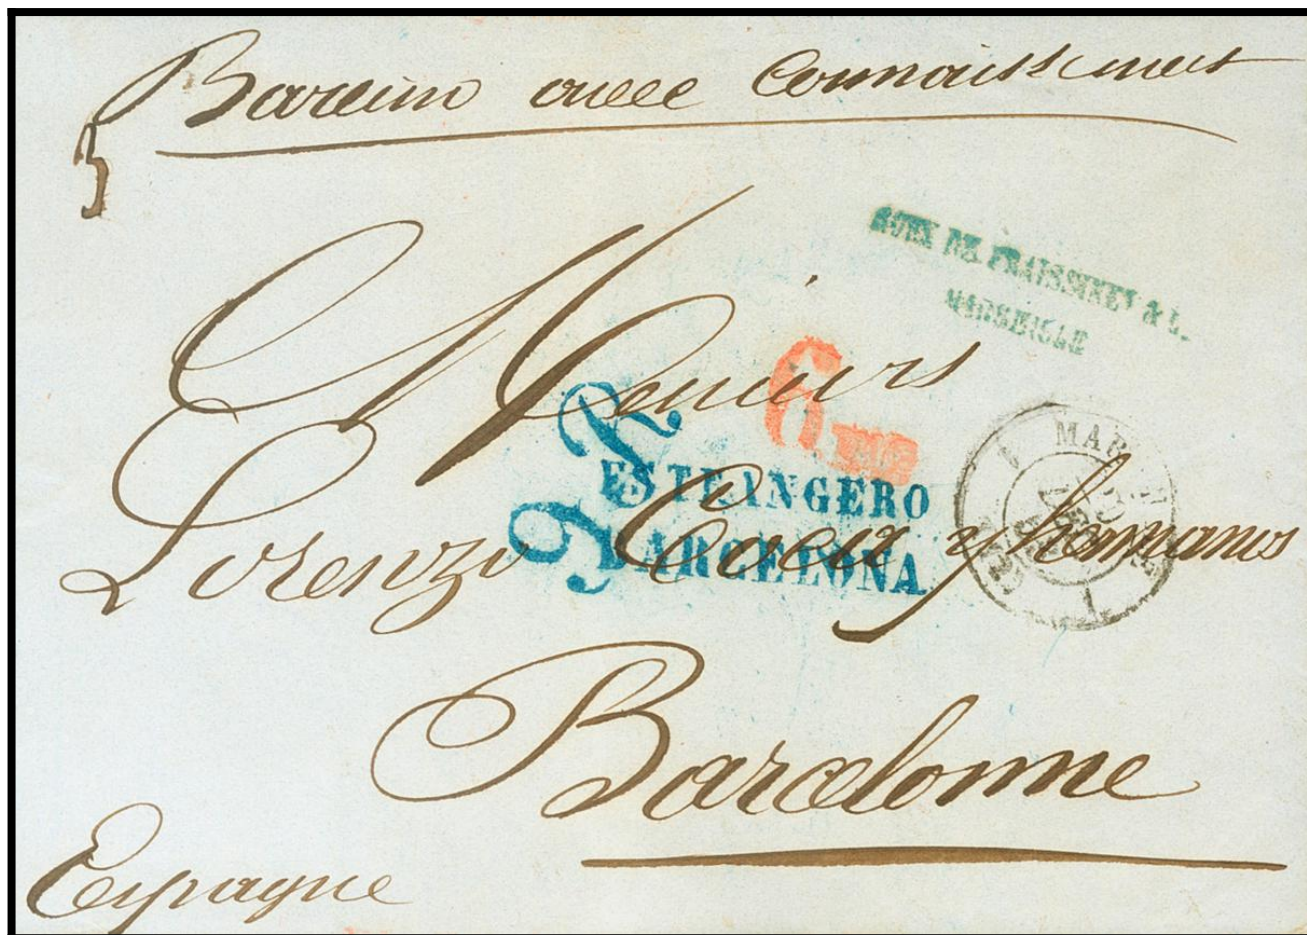 Barcino avec Connaissement
ROUX DE FRAISSINET & C.
MARSEILLE
Messieurs
6
ESTRANGERO
BARCELONA
MAR
Lorenzo y hermanos
Barcelonne
Espagne